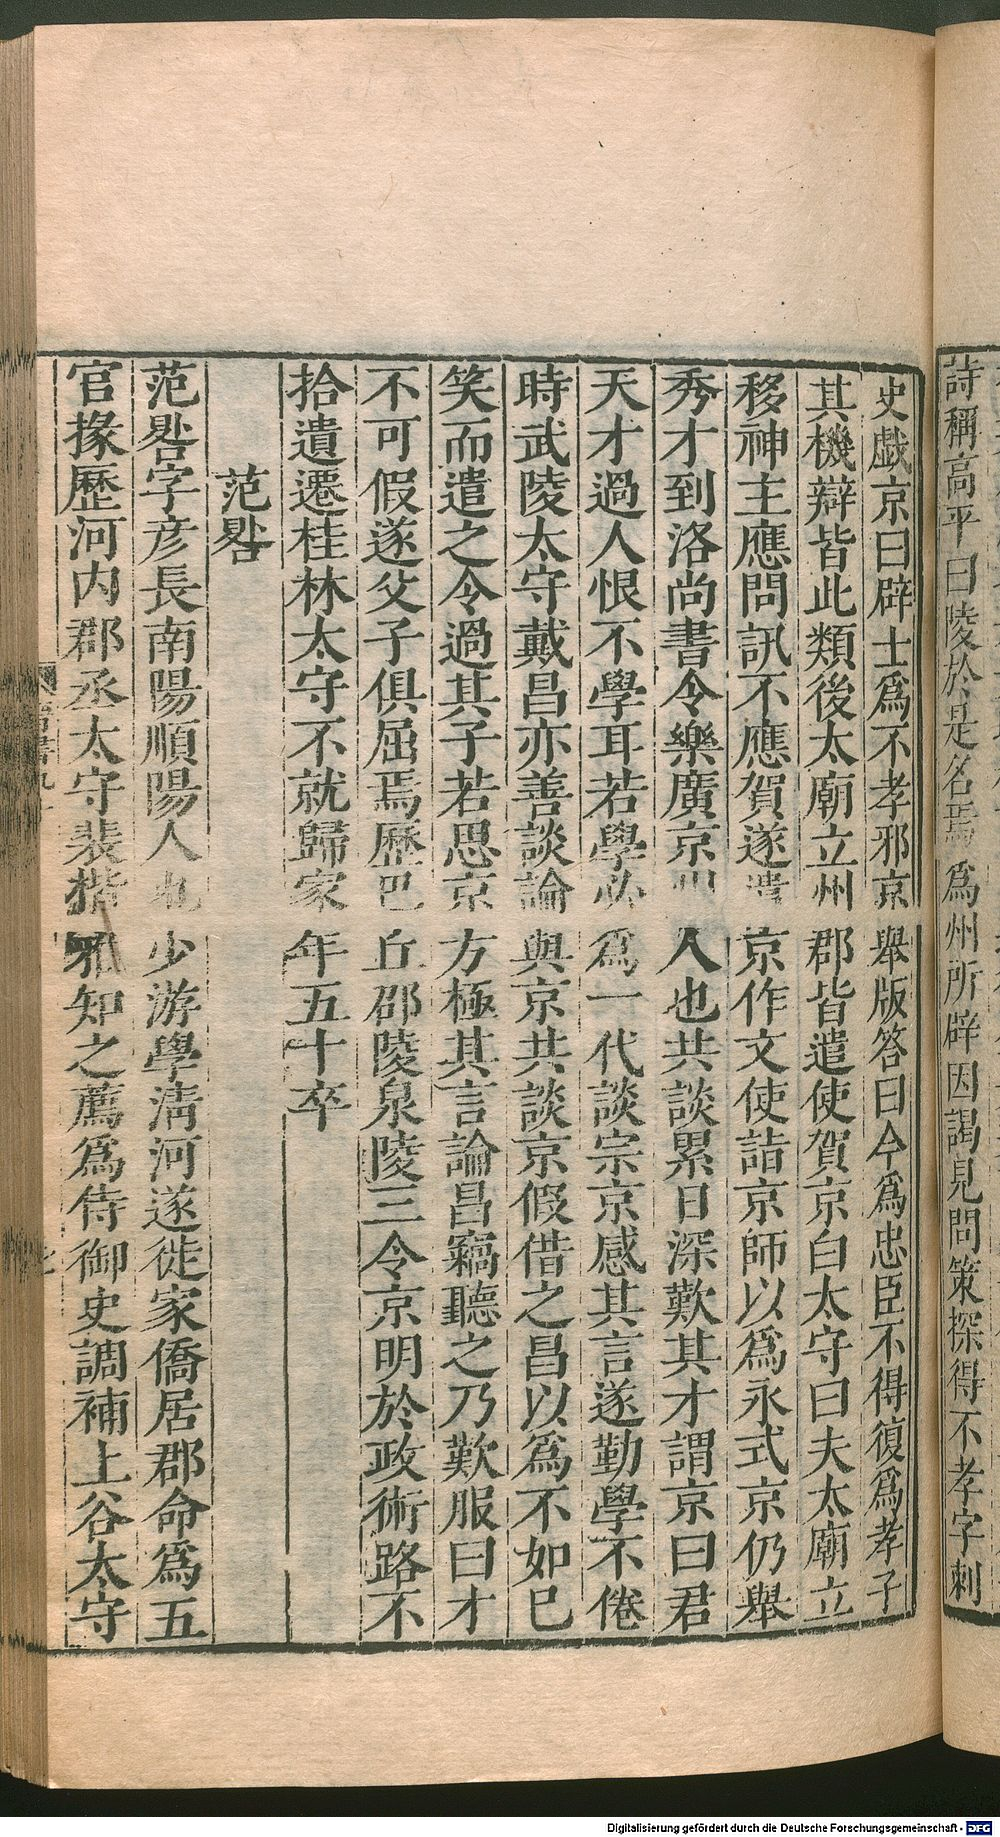 詩稱高平曰陵於是名焉爲州所辟因謁見問策探得不孝字刺
史戲京曰辟士爲不孝邪京舉版答曰今爲忠臣不得復爲孝子
其機辯皆此類後太廟立州郡皆遣使賀京白太守曰夫太廟立
移神主應問訊不應賀遂遣京作文使詣京師以爲永式京仍舉
秀才到洛尚書令樂廣京州人也共談累日深歎其才謂京曰君
天才過人恨不學耳若學必爲一代談宗京感其言遂勤學不倦
時武陵太守戴昌亦善談論與京共談京假借之昌以爲不如巳
笑而遣之令過其子若思京方極其言論昌竊聽之乃歎服曰才
不可假遂父子俱屈焉歷巴丘邵陵泉陵三令京明於政術路不
拾遺遷桂林太守不就歸家年五十卒
范晷
范晷字彦長南陽順陽人也少游學淸河遂徙家僑居郡命爲五
官掾歷河内郡丞太守裴楷雅知之薦爲侍御史調補上谷太守
Digitalisierung gefördert durch die Deutsche Forschungsgemeinschaft - DFG